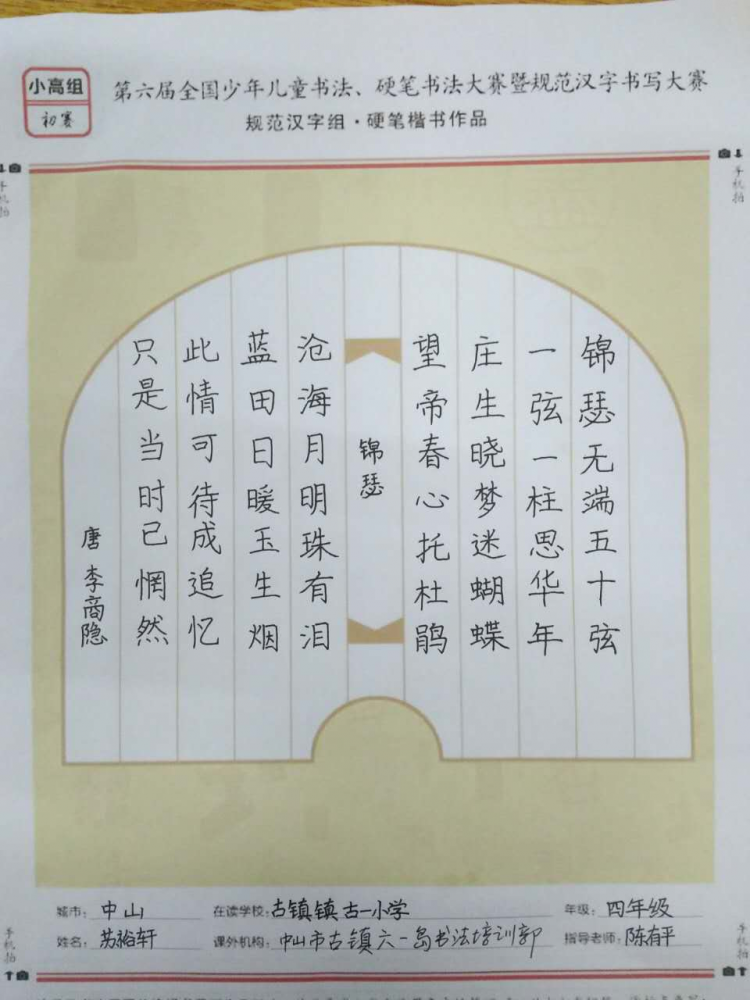 小高组
初赛
第六届全国少年儿童书法、硬笔书法大赛暨规范汉字书写大赛
规范汉字组·硬笔楷书作品
手机拍
手机拍
锦瑟无端五十弦
一弦一柱思华年
庄生晓梦迷蝴蝶
望帝春心托杜鹃
锦瑟
沧海月明珠有泪
蓝田日暖玉生烟
此情可待成追忆
只是当时已惘然
唐 李商隐
城市: 中山 在读学校: 古镇镇古一小学 年级: 四年级
姓名: 苏裕轩 课外机构: 中山市古镇六一岛书法培训部 指导老师: 陈有平
手机拍
手机拍